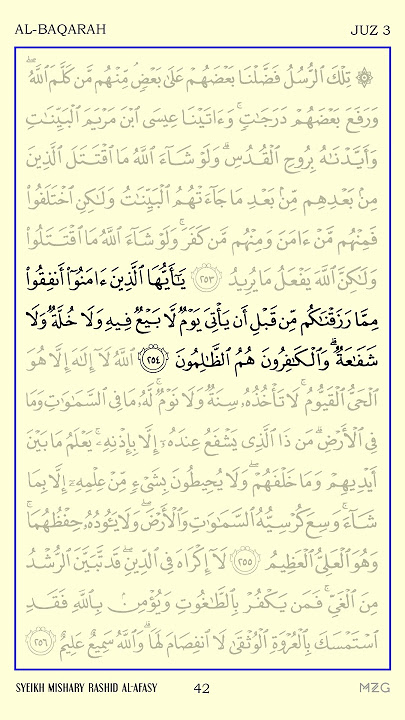 AL-BAQARAH
JUZ 3
۞ تِلْكَ الرُّسُلُ فَضَّلْنَا بَعْضَهُمْ عَلَىٰ بَعْضٍ ۘ مِّنْهُم مَّن كَلَّمَ اللَّهُ ۖ
وَرَفَعَ بَعْضَهُمْ دَرَجَاتٍ ۚ وَءَاتَيْنَا عِيسَى ابْنَ مَرْيَمَ الْبَيِّنَاتِ
وَأَيَّدْنَاهُ بِرُوحِ الْقُدُسِ ۗ وَلَوْ شَاءَ اللَّهُ مَا اقْتَتَلَ الَّذِينَ
مِنۢ بَعْدِهِم مِّنۢ بَعْدِ مَا جَاءَتْهُمُ الْبَيِّنَاتُ وَلَٰكِنِ اخْتَلَفُوا
فَمِنْهُم مَّنْ ءَامَنَ وَمِنْهُم مَّن كَفَرَ ۚ وَلَوْ شَاءَ اللَّهُ مَا اقْتَتَلُوا
وَلَٰكِنَّ اللَّهَ يَفْعَلُ مَا يُرِيدُ ٢٥٣ يَٰٓأَيُّهَا الَّذِينَ ءَامَنُوٓا أَنفِقُوا
مِمَّا رَزَقْنَٰكُم مِّن قَبْلِ أَن يَأْتِيَ يَوْمٌ لَّا بَيْعٌ فِيهِ وَلَا خُلَّةٌ وَلَا
شَفَٰعَةٌ ۗ وَالْكَٰفِرُونَ هُمُ الظَّٰلِمُونَ ٢٥٤ اللَّهُ لَا إِلَٰهَ إِلَّا هُوَ
الْحَيُّ الْقَيُّومُ ۚ لَا تَأْخُذُهُ سِنَةٌ وَلَا نَوْمٌ ۚ لَّهُ مَا فِي السَّمَٰوَٰتِ وَمَا
فِي الْأَرْضِ ۗ مَن ذَا الَّذِي يَشْفَعُ عِندَهُ إِلَّا بِإِذْنِهِ ۚ يَعْلَمُ مَا بَيْنَ
أَيْدِيهِمْ وَمَا خَلْفَهُمْ ۖ وَلَا يُحِيطُونَ بِشَيْءٍ مِّنْ عِلْمِهِ إِلَّا بِمَا
شَاءَ ۚ وَسِعَ كُرْسِيُّهُ السَّمَٰوَٰتِ وَالْأَرْضَ ۖ وَلَا يَئُودُهُ حِفْظُهُمَا ۚ
وَهُوَ الْعَلِيُّ الْعَظِيمُ ٢٥٥ لَا إِكْرَاهَ فِي الدِّينِ ۖ قَد تَّبَيَّنَ الرُّشْدُ
مِنَ الْغَيِّ ۚ فَمَن يَكْفُرْ بِالطَّٰغُوتِ وَيُؤْمِنۢ بِاللَّهِ فَقَدِ
اسْتَمْسَكَ بِالْعُرْوَةِ الْوُثْقَىٰ لَا انفِصَامَ لَهَا ۗ وَاللَّهُ سَمِيعٌ عَلِيمٌ ٢٥٦
SYEIKH MISHARY RASHID AL-AFASY
42
MZG